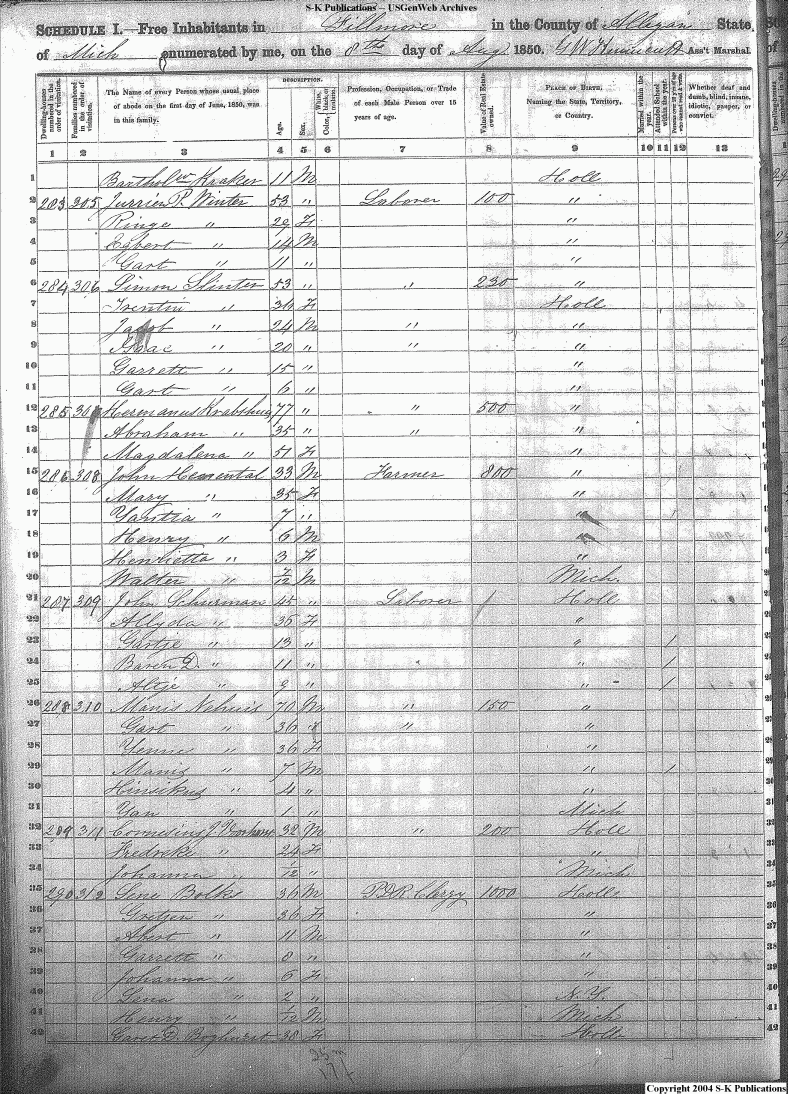 S-K Publications -- USGenWeb Archives
SCHEDULE I.—Free Inhabitants in Fillmore in the County of Allegan State,
of Mich enumerated by me, on the 8th day of Aug 1850. Ass't Marshal.
DESCRIPTION.
Dwelling-houses numbered in the order of visitation.
Families numbered in the order of visitation.
The Name of every Person whose usual place of abode on the first day of June, 1850, was in this family.
Age.
Sex.
Color, White, black, or mulatto.
Profession, Occupation, or Trade of each Male Person over 15 years of age.
Value of Real Estate owned.
PLACE OF BIRTH, Naming the State, Territory, or Country.
Married within the year.
Attended School within the year.
Persons over 20 y'rs of age who cannot read & write.
Whether deaf and dumb, blind, insane, idiotic, pauper, or convict.
1 2 3 4 5 6 7 8 9 10 11 12 13
1 Kraker 11 M Holl
2 283 305 Jurrien P. Winter 53 " Laborer 100 "
3 Ringe " 29 F "
4 Egbert " 14 M "
5 Gart " 11 " "
6 284 306 Simon Slinter 53 " " 230 "
7 Trentin " 36 F Holl
8 Jacob " 24 M " "
9 Isaac " 20 " " "
10 Garrett " 15 " "
11 Gart " 6 " "
12 285 307 Heremanus 77 " " 500 "
13 Abraham " 35 " " "
14 Magdalena " 51 F "
15 286 308 John Hemental 33 M Farmer 800 "
16 Mary " 35 F "
17 " 7 " " 1
18 Henry " 6 M "
19 Henrietta " 3 F "
20 Walter " 7/12 M Mich.
21 287 309 John Schurman 45 " Laborer / Holl
22 Allyda " 35 F "
23 Gartje " 13 " " 1
24 Baren D. " 11 " " 1
25 Altje " 9 " " 1
26 288 310 Manis Nehuis 70 M " 150 "
27 Gart " 36 " " "
28 " 36 F "
29 Manis " 7 M " 1
30 " 4 " "
31 Yan " 1 " Mich
32 289 311 Cornelius 32 M " 200 Holl
33 Fredricke " 24 F "
34 Johanna " /12 " Mich
35 290 312 Sene Bolks 36 M P.D.R. Clergy 1000 Holl
36 Gretjen " 36 F "
37 Abert " 11 M "
38 Garrett " 8 " "
39 Johanna " 6 F "
40 Lena " 2 " N.Y.
41 Henry " /12 M Mich
42 Garet D. Boghurst 38 F Holl
Copyright 2004 S-K Publications